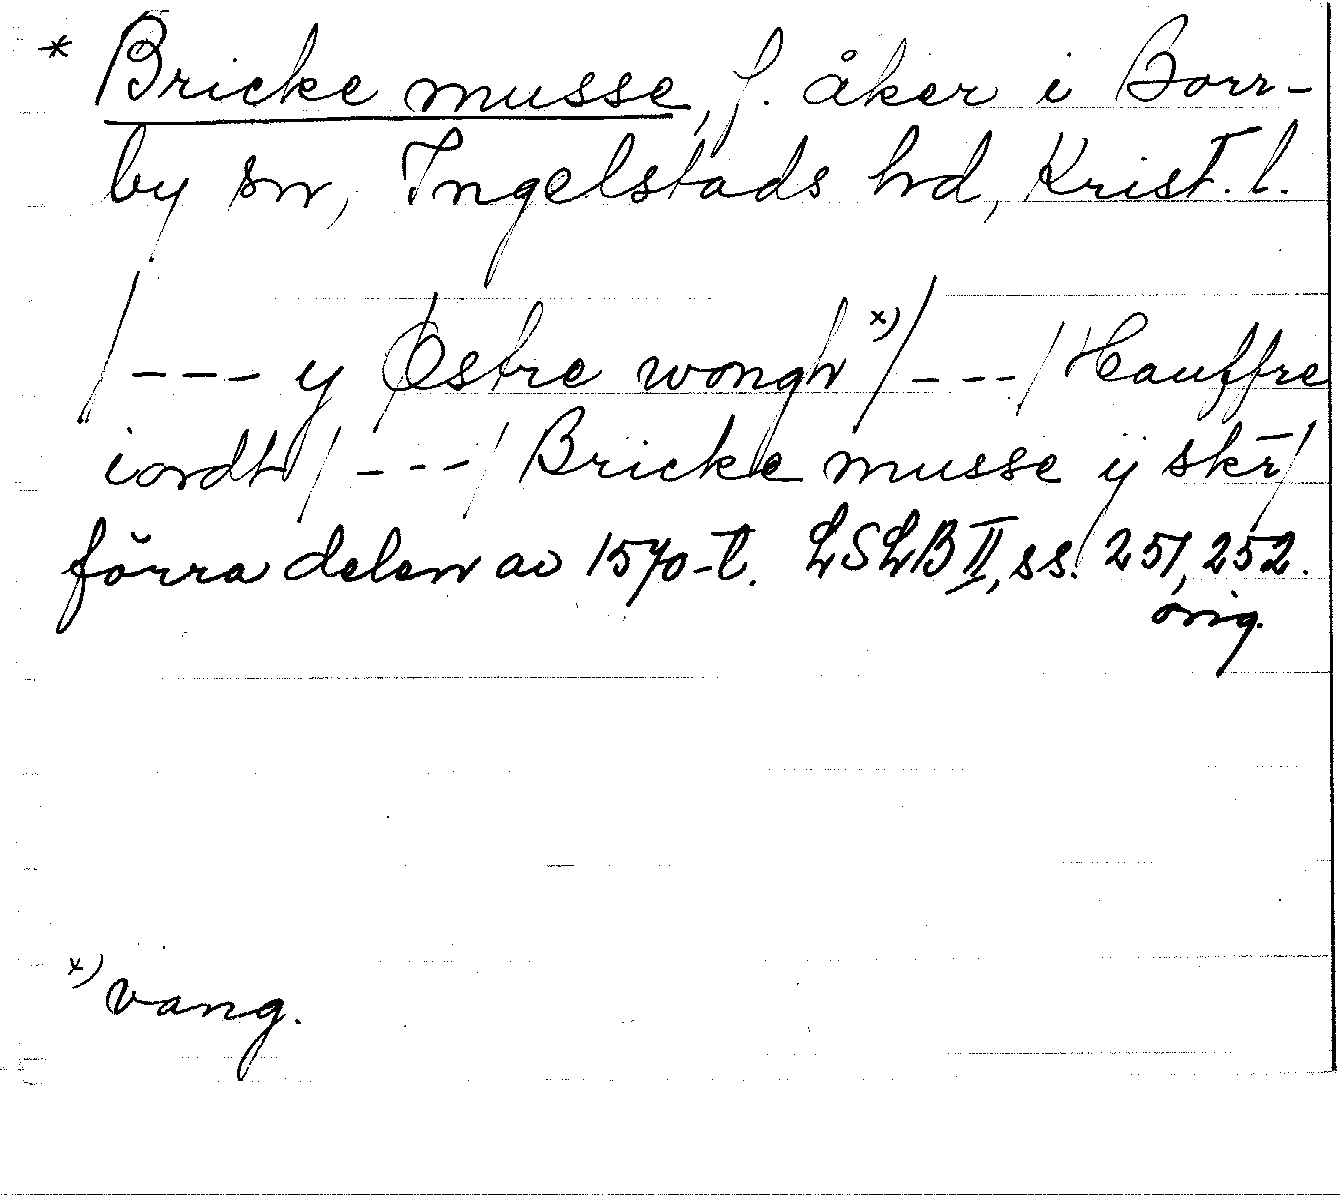 * Bricke musse, f. åker i Borr-
by sn, Ingelstads hd, Krist. l.
/---y Østre wongh x)/---/Hauffre
iordh/---/Bricke musse ÿ skr̄/
förra delen av 1570-t. LSLB II, ss. 251, 252.
orig.
x) vang.